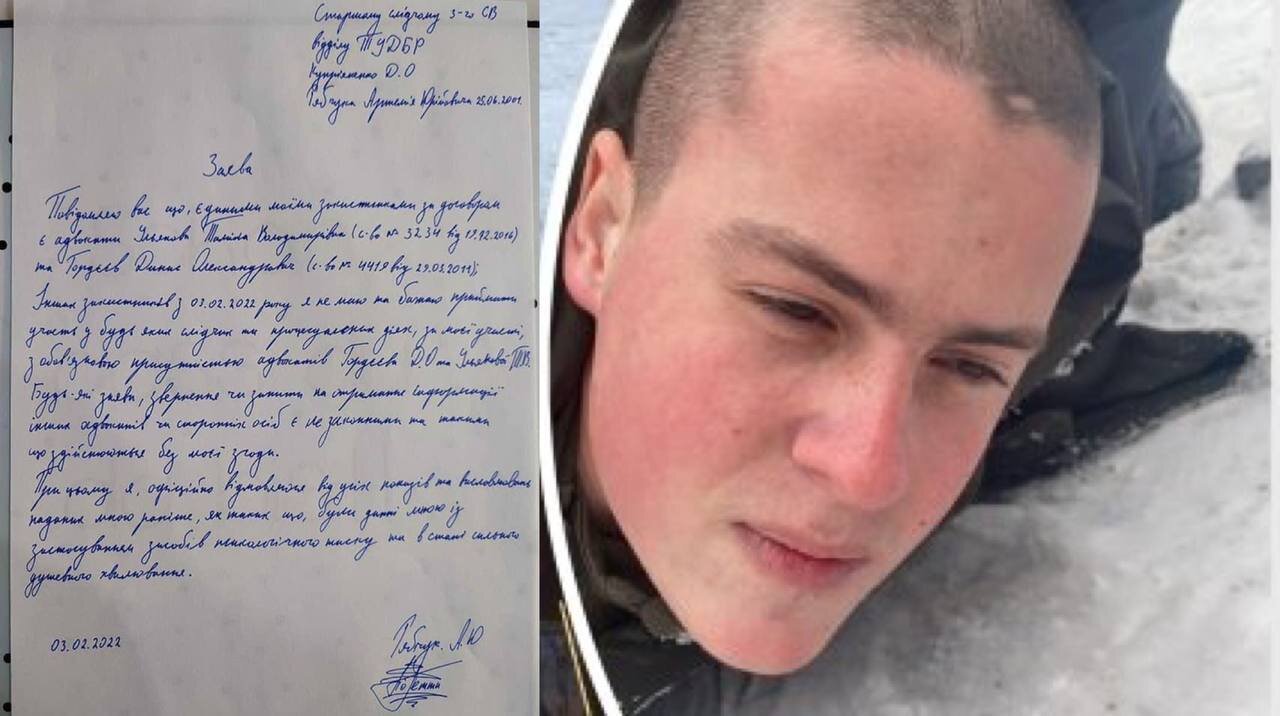 Старшому слідчому 3-го СВ
відділу ТУДБР
Купріяненко Д.О
Рябчука Артемія Юрійовича 25.06.2001.
Заява
Повідомляю вас що, єдиними моїми захистниками за договорам
є адвокати Ульянова Поліна Володимирівна (с-во № 3234 від 19.12.2016)
та Гордєєв Динис Олександрович (с-во № 4419 від 29.03.2011);
Інших захистників з 03.02.2022 року я не маю та бажаю приймати
участь у будь яких слідчих та процесуальних діях, за моєї участі,
з обов'язковою присутністью адвокатів Гордєєва Д.О та Ульянової
Будь-які заяви, звернення чи запити на отримання інформації
інших адвокатів чи сторонніх осіб є не законними та такими
що здійснюються без моєї згоди.
При цьому я, офіційно відмовляюся від усіх показів та висловлювань
наданих мною раніше, як таких що, були данні мною із
застосуванням засобів психологічного тиску та в стані сильного
душевного хвилювання.
03.02.2022
Рябчук. А.Ю